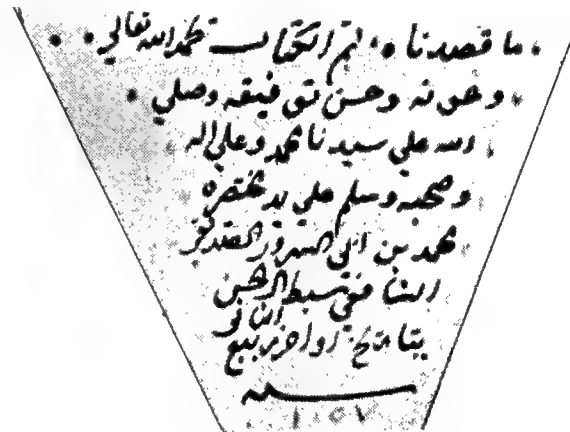 ما قصدنا . تم الكتاب بحمد الله تعالي
وعونه وحسن توفيقه وصلي
الله علي سيدنا محمد وعلي اله
وصحبه وسلم علي يد مختصره
محمد بن ابي السرور
الشافعي سبط ال الحسن
بتاريخ اواخر ربيع
سنه
١٠٥٧